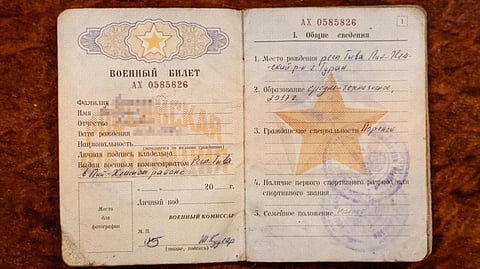 ВОЕННЫЙ БИЛЕТ
АХ 0585826
Фамилия
Имя
Отчество
Дата рождения
Национальность
(заполняется по желанию гражданина)
Личная подпись владельца
Выдан военным комиссариатом Респ Тыва
в Пий-Хемском районе
20 г.
Личный код
Место
для
фотографии
ВОЕННЫЙ КОМИССАР
М.П.
(звание, подпись)
АХ 0585826
1
I. Общие сведения
1. Место рождения респ Тыва Пий-Хем-
ский р-н г. Туран
2. Образование средне-техническое,
2017г.
3. Гражданские специальности
4. Наличие первого спортивного разряда или
спортивного звания
5. Семейное положение холост